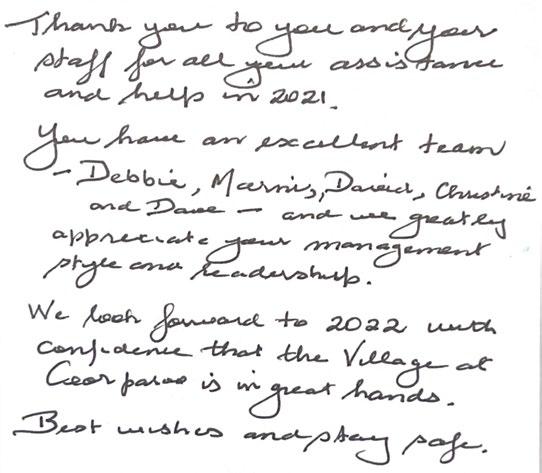 Thank you to you and your
staff for all your assistance
and help in 2021.
You have an excellent team
- Debbie, Marnis, David, Christine
and Dave - and we greatly
appreciate your management
style and leadership.
We look forward to 2022 with
confidence that the Village at
is in great hands.
Best wishes and stay safe.